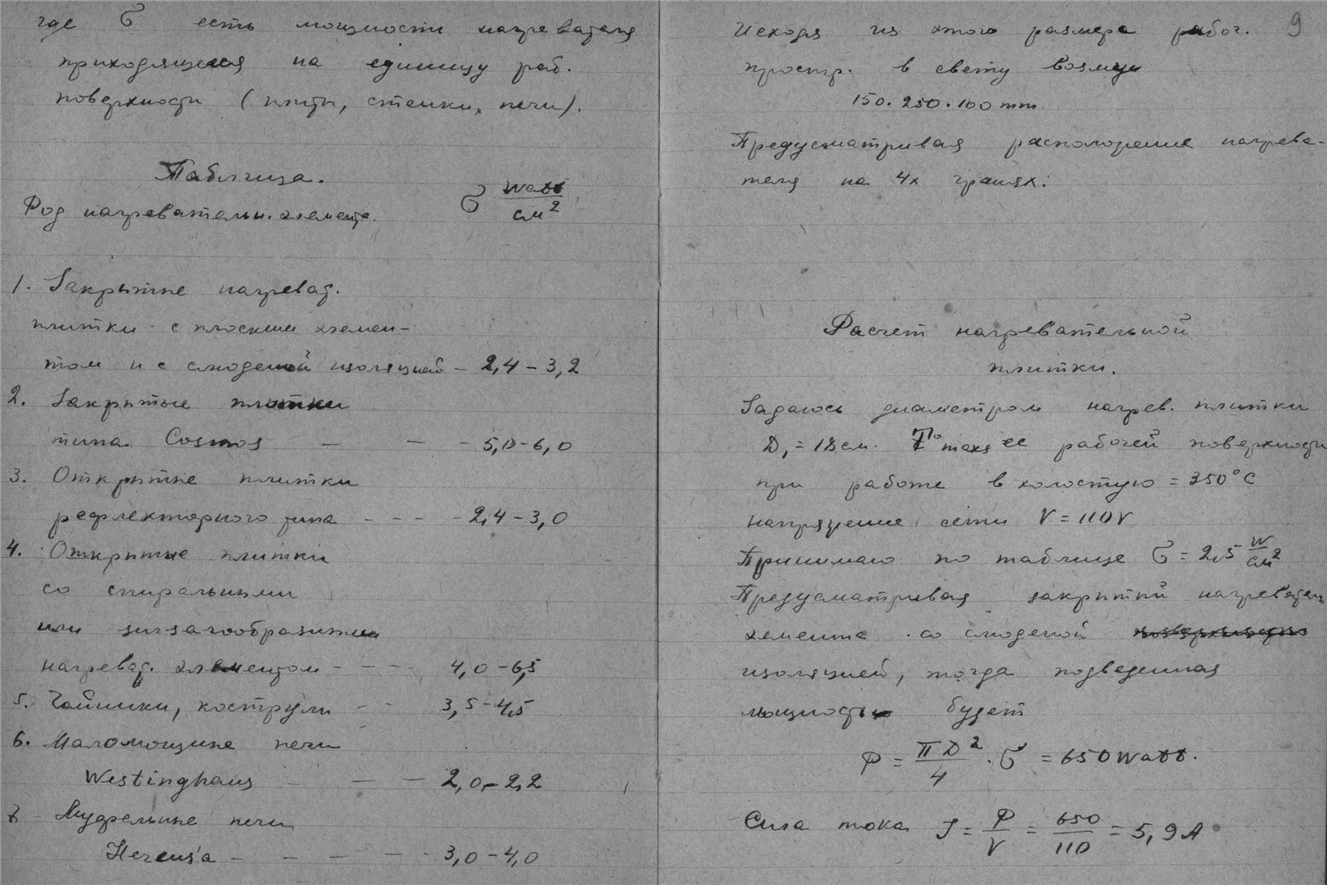 где σ есть мощности нагревателя
приходящегося на единицу раб.
поверхности (плиты, стенки, печи).
Таблица.
Род нагревательн. элемента. σ Watt/см²
1. Закрытые нагреват.
плитки с плоским элемен-
том и с слюденой изоляцией – 2,4 – 3,2
2. Закрытые плитки
типа Cosmos — — - 5,0 - 6,0
3. Открытые плитки
рефлекторного типа - - - - 2,4 - 3,0
4. Открытые плитки
со спиральными
или зигзагообразными
нагреват. элементом - - - - 4,0 - 6,5
5. Чайники, кострюли - - 3,5 - 4,5
6. Маломощные печи
Westinghaus — — — 2,0 - 2,2
7 Муфельные печи
Hereus'a - - - - - 3,0 - 4,0
9
Исходя из этого размера рабог.
простр. в свету возьму
150. 250. 100 mm.
Предусматривая расположение нагрева-
теля на 4х гранях.
Расчет нагревательной
плитки.
Задаюсь диаметром нагрев. плитки
D₁ = 18 см. T° max ее рабочей поверхности
при работе в холостую = 350°C
напряжение сети V = 110 V
Принимаю по таблице σ = 2,5 W/см²
Предусматривая закрытый нагреватель
элемента со слюденой
изоляцией, тогда подведенная
мощность будет
P = πD²/4 · σ = 650 Watt.
Сила тока J = P/V = 650/110 = 5,9 A